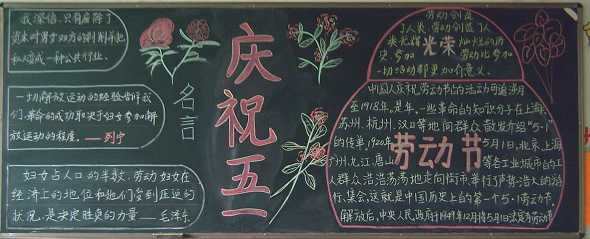 我深信,只有废除了
资本对男女双方的剥削并把
私人变成一种公共行业.
一切解放运动的经验告诉我
们,革命的成功取决于妇女参加解
放运动的程度.——列宁
妇女占人口的半数,劳动妇女在
经济上的地位和她们受到压迫的
状况,是决定胜负的力量——毛泽东
名言
庆祝五一
劳动创造
人类 劳动创造了人
类光辉 光荣 灿烂的历
史.参加 劳动比参加
一切活动都更加有意义.
中国人庆祝劳动节的活动可追溯
至1918年,是年,一些革命的知识分子在上海、
苏州、杭州、汉口等地向群众散发介绍"5·1"
的传单,1920年 5月1日,北京、上海
广州、九江、唐山 等各工业城市的工
劳动节
人群众浩浩荡荡地走向街市、举行了声势浩大的游
行、集会,这就是中国历史上的第一个5·1劳动节,
解放后,中央人民政府于1949年12月将5月1日法定为劳动节